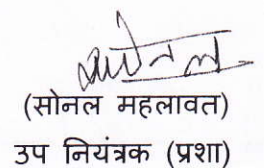 (सोनल महलावत)
उप नियंत्रक (प्रशा)